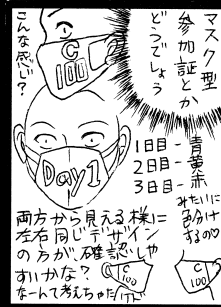 マスク型
参加証とか
どうでしょう
こんな感じ?
C
100
Day1
1日目-青
2日目-黄
3日目-赤
みたいに
色分け
するの♡
両方から見える様に
左右同じデザイン
の方が確認しや
すいかな?
なーんて考えちゃた(汗)
C
100
C
100